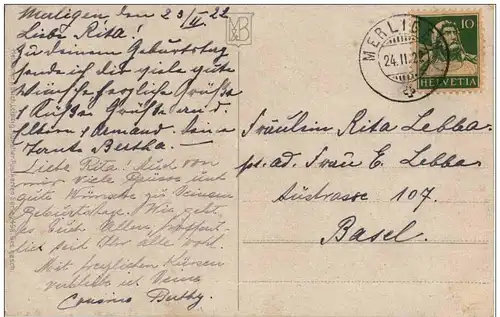 Merligen, den 23/II. 22
Liebe Rita!
Zu deinem Geburtstag
sende ich dir viele gute
Wünsche herzliche Grüsse
& Küsse Grüsse an d.
Eltern & Armand. Deine
Tante Bertha. —
Liebe Rita! Auch von
mir viele Grüsse und
gute Wünsche zu Deinem
Geburtstage. Wie geht
es Euch Allen, hoffent-
lich seit Ihr alle wohl.
Mit herzlichen Küssen
verbleibt ich Deine
Cousine Berthy.
MERLIGEN
24.II.22
10
HELVETIA
Fräulein Rita Lebba
pr. ad. Frau E. Lebba
Austrasse 107.
Basel.